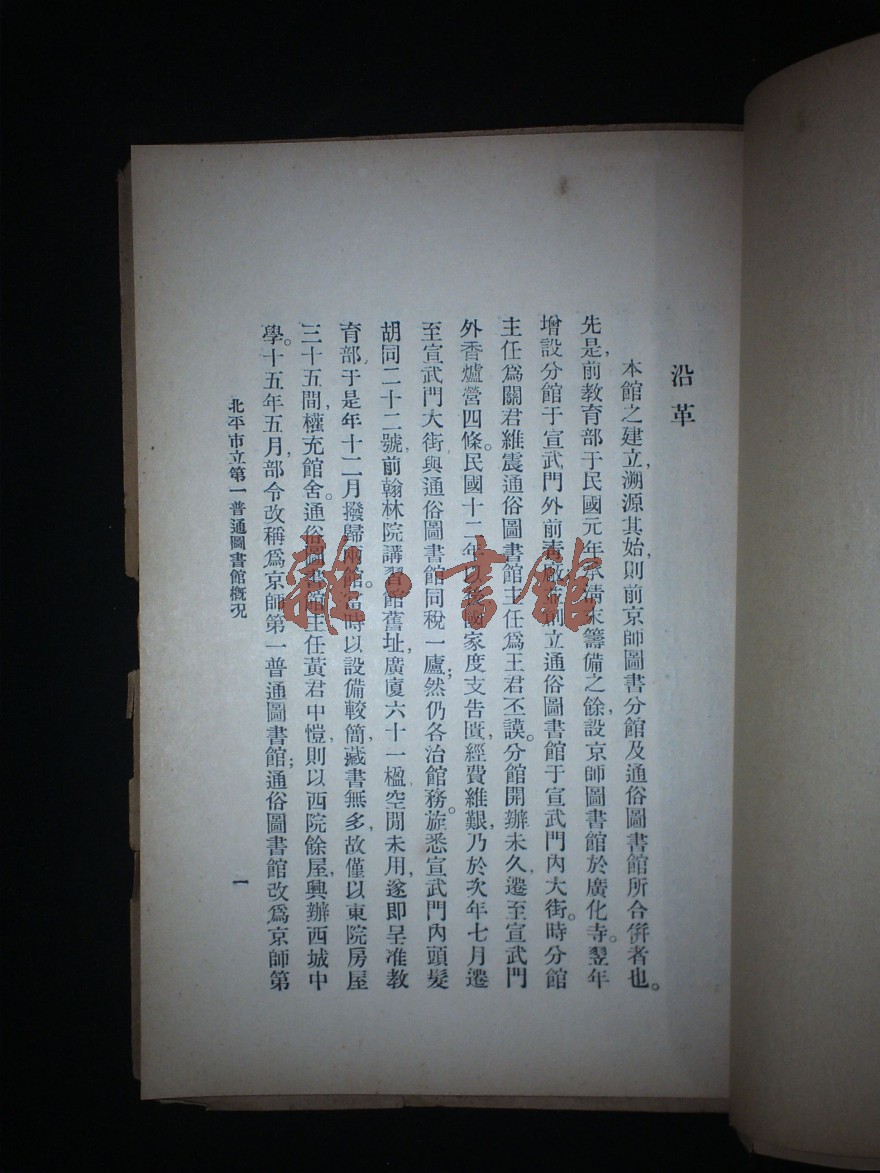 沿革
本館之建立,溯源其始,則前京師圖書分館及通俗圖書館所合倂者也。
先是,前教育部于民國元年承清末籌備之餘,設京師圖書館於廣化寺。翌年
增設分館于宣武門外前青廠,別立通俗圖書館于宣武門內大街。時分館
主任爲關君維震,通俗圖書館主任爲王君丕謨。分館開辦未久,遷至宣武門
外香爐營四條。民國十二年以後,國家度支告匱,經費維艱,乃於次年七月遷
至宣武門大街,與通俗圖書館同稅一廬;然仍各治館務。旋悉宣武門內頭髮
胡同二十二號,前翰林院講習館舊址,廣廈六十一楹,空閒未用,遂即呈准教
育部,于是年十二月撥歸兩館。當時以設備較簡,藏書無多,故僅以東院房屋
三十五間,權充館舍。通俗圖書館主任黃君中愷,則以西院餘屋,興辦西城中
學。十五年五月,部令改稱爲京師第一普通圖書館;通俗圖書館改爲京師第
北平市立第一普通圖書館概況
一
雜·書館